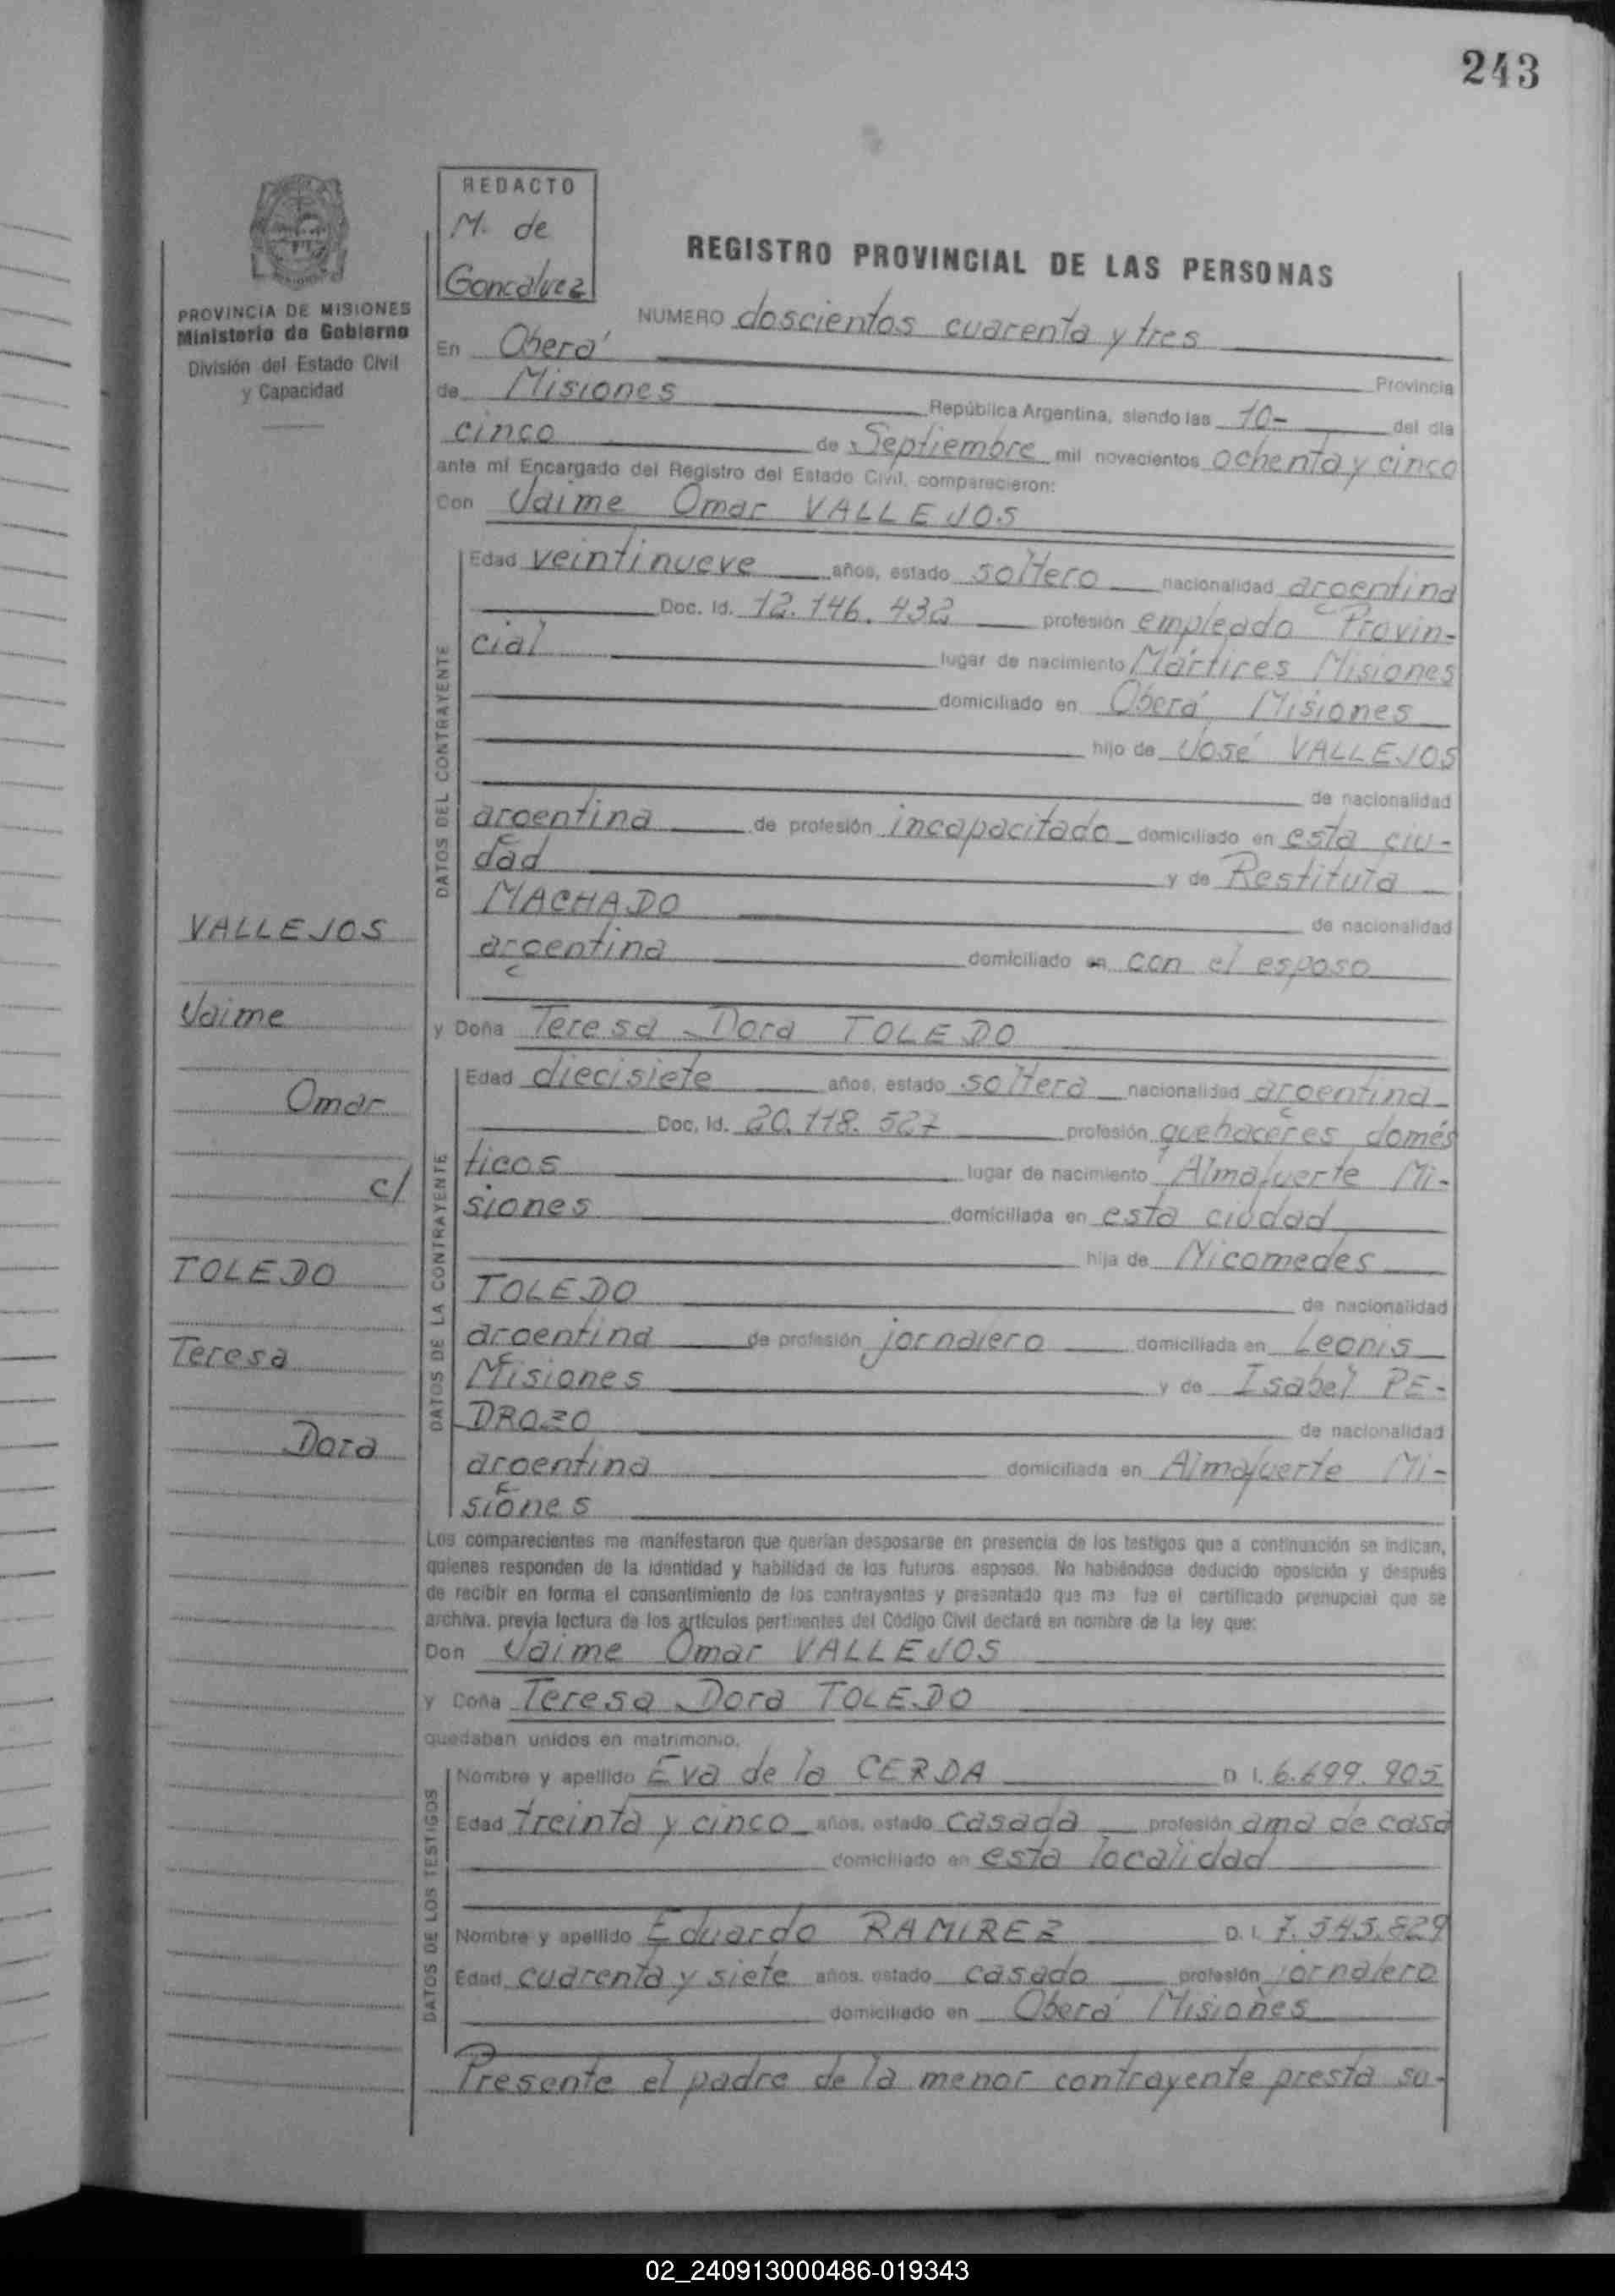 243
REDACTO
M. de
Goncalvez
REGISTRO PROVINCIAL DE LAS PERSONAS
PROVINCIA DE MISIONES
Ministerio de Gobierno
División del Estado Civil
y Capacidad
NUMERO doscientos cuarenta y tres
En Oberá
Provincia
de Misiones República Argentina, siendo las 10- del día
cinco de Septiembre mil novecientos ochenta y cinco
ante mí Encargado del Registro del Estado Civil, comparecieron:
Con Jaime Omar VALLEJOS
DATOS DEL CONTRAYENTE
Edad veintinueve años, estado soltero nacionalidad argentina
Doc. Id. 12.146.432 profesión empleado Provin-
cial lugar de nacimiento Mártires Misiones
domiciliado en Oberá Misiones
hijo de José VALLEJOS
de nacionalidad
argentina de profesión incapacitado domiciliado en esta ciu-
dad y de Restituta
MACHADO de nacionalidad
argentina domiciliado en con el esposo
VALLEJOS
Jaime
Omar
c/
TOLEDO
Teresa
Dora
y Doña Teresa Dora TOLEDO
DATOS DE LA CONTRAYENTE
Edad diecisiete años, estado soltera nacionalidad argentina
Doc. Id. 20.118.527 profesión quehaceres domés
ticos lugar de nacimiento Almafuerte Mi-
siones domiciliada en esta ciudad
hija de Nicomedes
TOLEDO de nacionalidad
argentina de profesión jornalero domiciliada en Leonis
Misiones y de Isabel PE-
DROZO de nacionalidad
argentina domiciliada en Almafuerte Mi-
siones
Los comparecientes me manifestaron que querían desposarse en presencia de los testigos que a continuación se indican,
quienes responden de la identidad y habilidad de los futuros esposos. No habiéndose deducido oposición y después
de recibir en forma el consentimiento de los contrayentes y presentado que me fue el certificado prenupcial que se
archiva. previa lectura de los artículos pertinentes del Código Civil declaré en nombre de la ley que:
Don Jaime Omar VALLEJOS
y Doña Teresa Dora TOLEDO
quedaban unidos en matrimonio.
DATOS DE LOS TESTIGOS
Nombre y apellido Eva de la CERDA D I. 6.699.905
Edad treinta y cinco años, estado casada profesión ama de casa
domiciliado en esta localidad
Nombre y apellido Eduardo RAMIREZ D. I. 7.545.829
Edad cuarenta y siete años, estado casado profesión jornalero
domiciliado en Oberá Misiones
Presente el padre de la menor contrayente presta su-
02_240913000486-019343